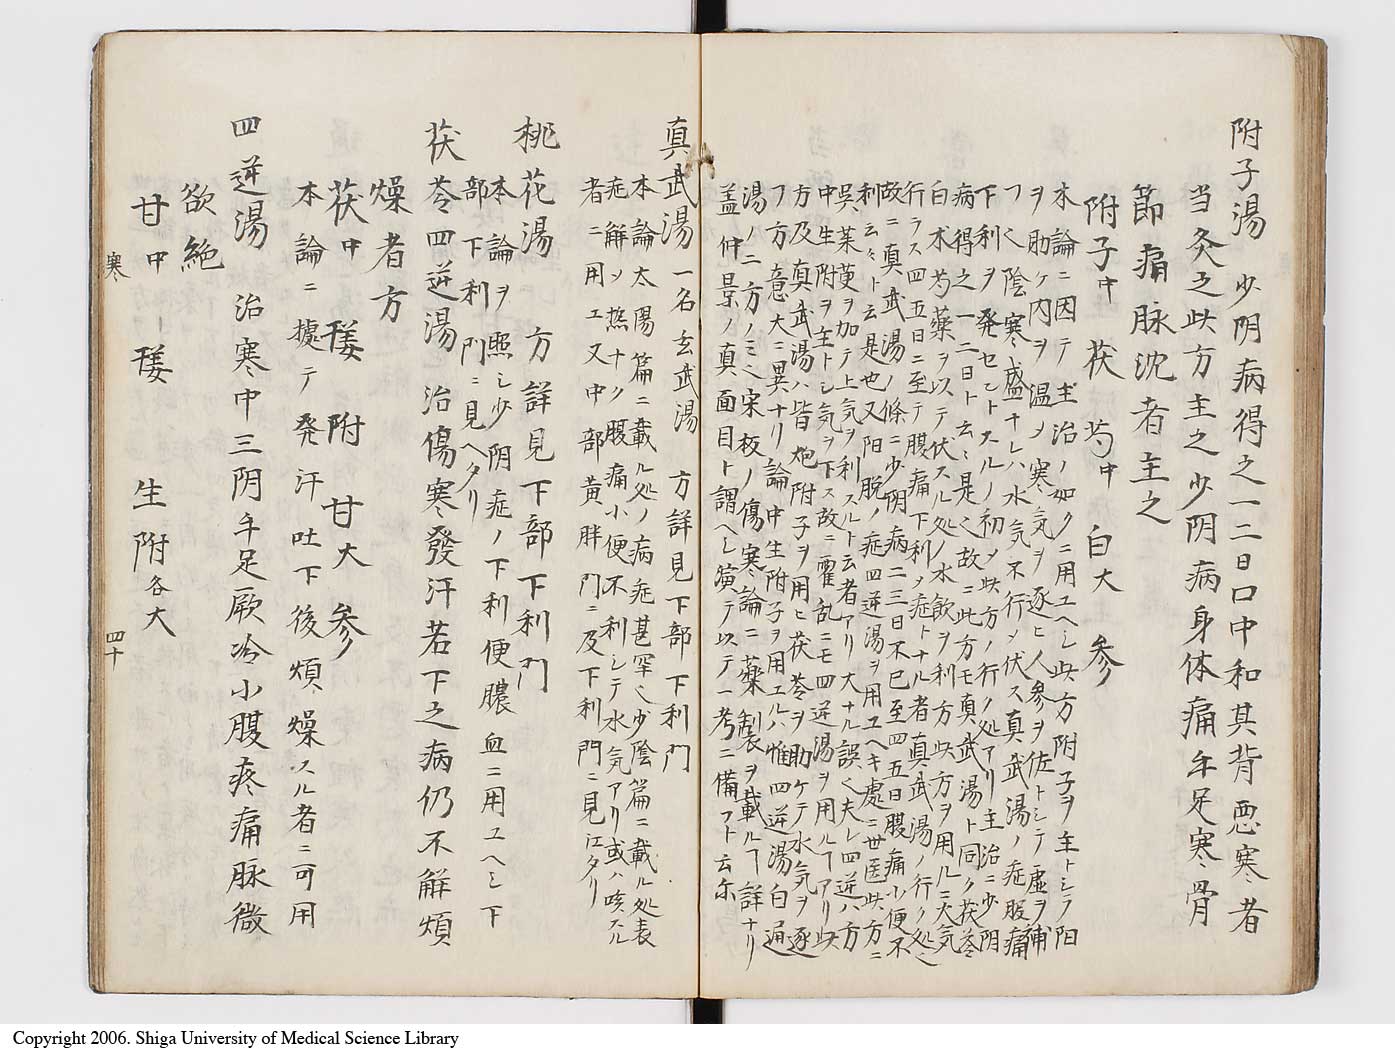 附子湯 少阴病得之一二日口中和其背悪寒者
当灸之此方主之少阴病身体痛手足寒骨
節痛脉沈者主之
附子中 茯 芍中 白大 参
本論ニ因テ主治ノ如クニ用ユヘシ此方附子ヲ主トシテ阳
ヲ助ケ内ヲ温メ寒気ヲ逐ヒ人参ヲ佐トシテ虚ヲ補
フ 陰寒盛ナレハ水気不行メ伏ス真武湯ノ症腹痛
下利ヲ発セントスルノ初メ此方ノ行ク処アリ主治ニ少阴
病得之一二日ト云是 故ニ此方モ真武湯ト同ク茯苓
白术芍薬ヲ以テ伏スル処ノ水飲ヲ利 方此方ヲ用ルニ 気
行ラス四五日ニ至テ腹痛下利ノ症トナル者真武湯ノ行ク処
故ニ真武湯ノ條ニ少阴病二三日不已至四五日腹痛小便不
利云々ト云是也又阳脱ノ症四逆湯ヲ用ユヘキ處ニ世医此方ニ
呉茱萸ヲ加テ上気ヲ利スルト云者アリ大ナル誤 夫レ四逆ハ方
中生附ヲ主トシ気ヲ下ス故ニ霍乱ニモ四逆湯ヲ用ルヿアリ此
方及真武湯ハ皆炮附子ヲ用ヒ茯苓ヲ助ケテ水気ヲ逐
フ方意大ニ異ナリ論中生附子ヲ用ユルハ惟四逆湯白通
湯ノ二方ノミ 宋板ノ傷寒論ニ薬製ヲ載ルヿ詳ナリ
盖仲景ノ真面目ト謂ヘシ演テ以テ一考ニ備フト云尓
真武湯 一名玄武湯 方詳見下部下利門
本論太陽篇ニ載ル処ノ病症甚罕 少陰篇ニ載ル処表
症解シ熱ナク腹痛小便不利シテ水気アリ或ハ咳スル
者ニ用エ又中部黄胖門ニ及下利門ニ見江タリ
桃花湯 方詳見下部下利门
本論ヲ照シ少阴症ノ下利便膿血ニ用ユヘシ下
部下利门ニ見ヘタリ
茯苓四逆湯 治傷寒發汗若下之病仍不解煩
燥者方
茯中 𦾔 附 甘大 参
本論ニ據テ発汗吐下後煩燥スル者ニ可用
四逆湯 治寒中三阴手足厥冷小腹疼痛脉微
欲絶
甘中 生附各大
寒
四十
Copyright 2006. Shiga University of Medical Science Library